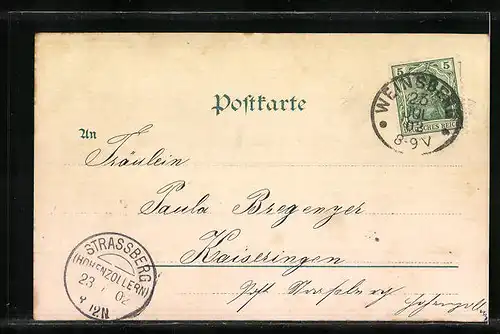 5 5
DEUTSCHES REICH
WEINSBERG
23
JUL
02
8-9 V
Postkarte
An
Fräulein
Paula Bregenzer
Kaiseringen
Post Strassberg Hohenzollern
STRASSBERG
(HOHENZOLLERN)
23 7 02
12N